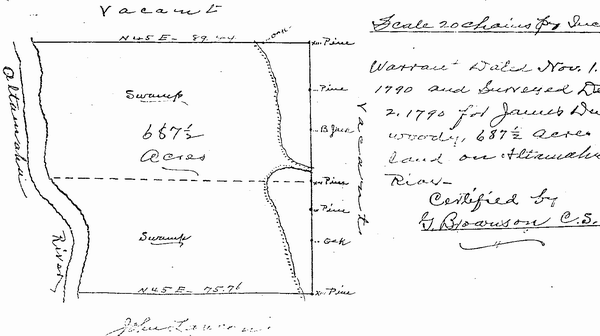 Vacant
N 45 E - 89.44
oak
x Pine
Pine
B Jack
x Pine
Pine
oak
x Pine
Swamp
687½
Acres
Swamp
N 45 E - 75.76
Altamaha
River
Vacant
John
Scale 20 chains per Inc
Warrant Dated Nov. 1.
1790 and Surveyed De
2. 1790 for James Du
woody, 687½ acres
Land on Altamaha
River -
Certified by
G. Brownson C.S.